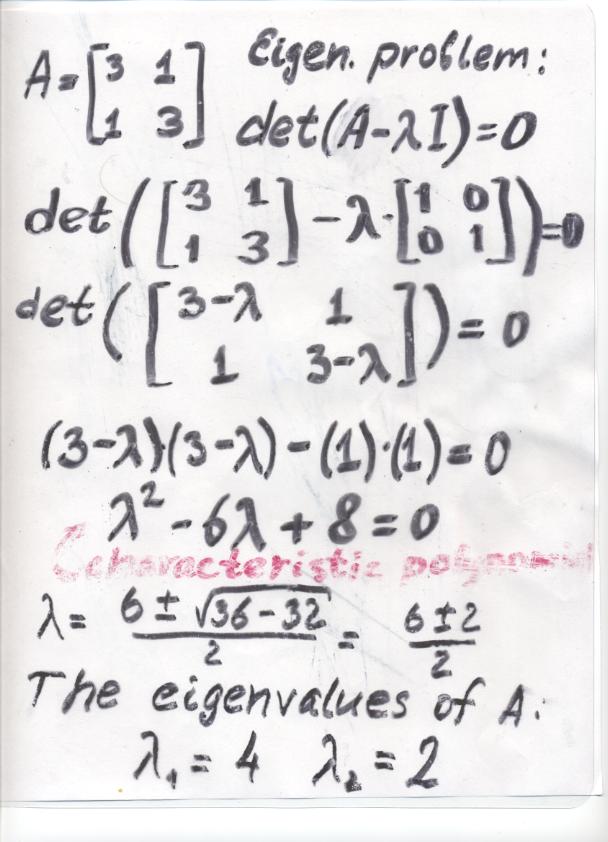 A = [3 1; 1 3] Eigen. problem:
det(A-λI)=0
det([3 1; 1 3] - λ·[1 0; 0 1])=0
det([3-λ 1; 1 3-λ]) = 0
(3-λ)·(3-λ) - (1)·(1) = 0
λ² - 6λ + 8 = 0
characteristic polynomial
λ = (6 ± √(36-32))/2 = (6±2)/2
The eigenvalues of A:
λ₁ = 4 λ₂ = 2